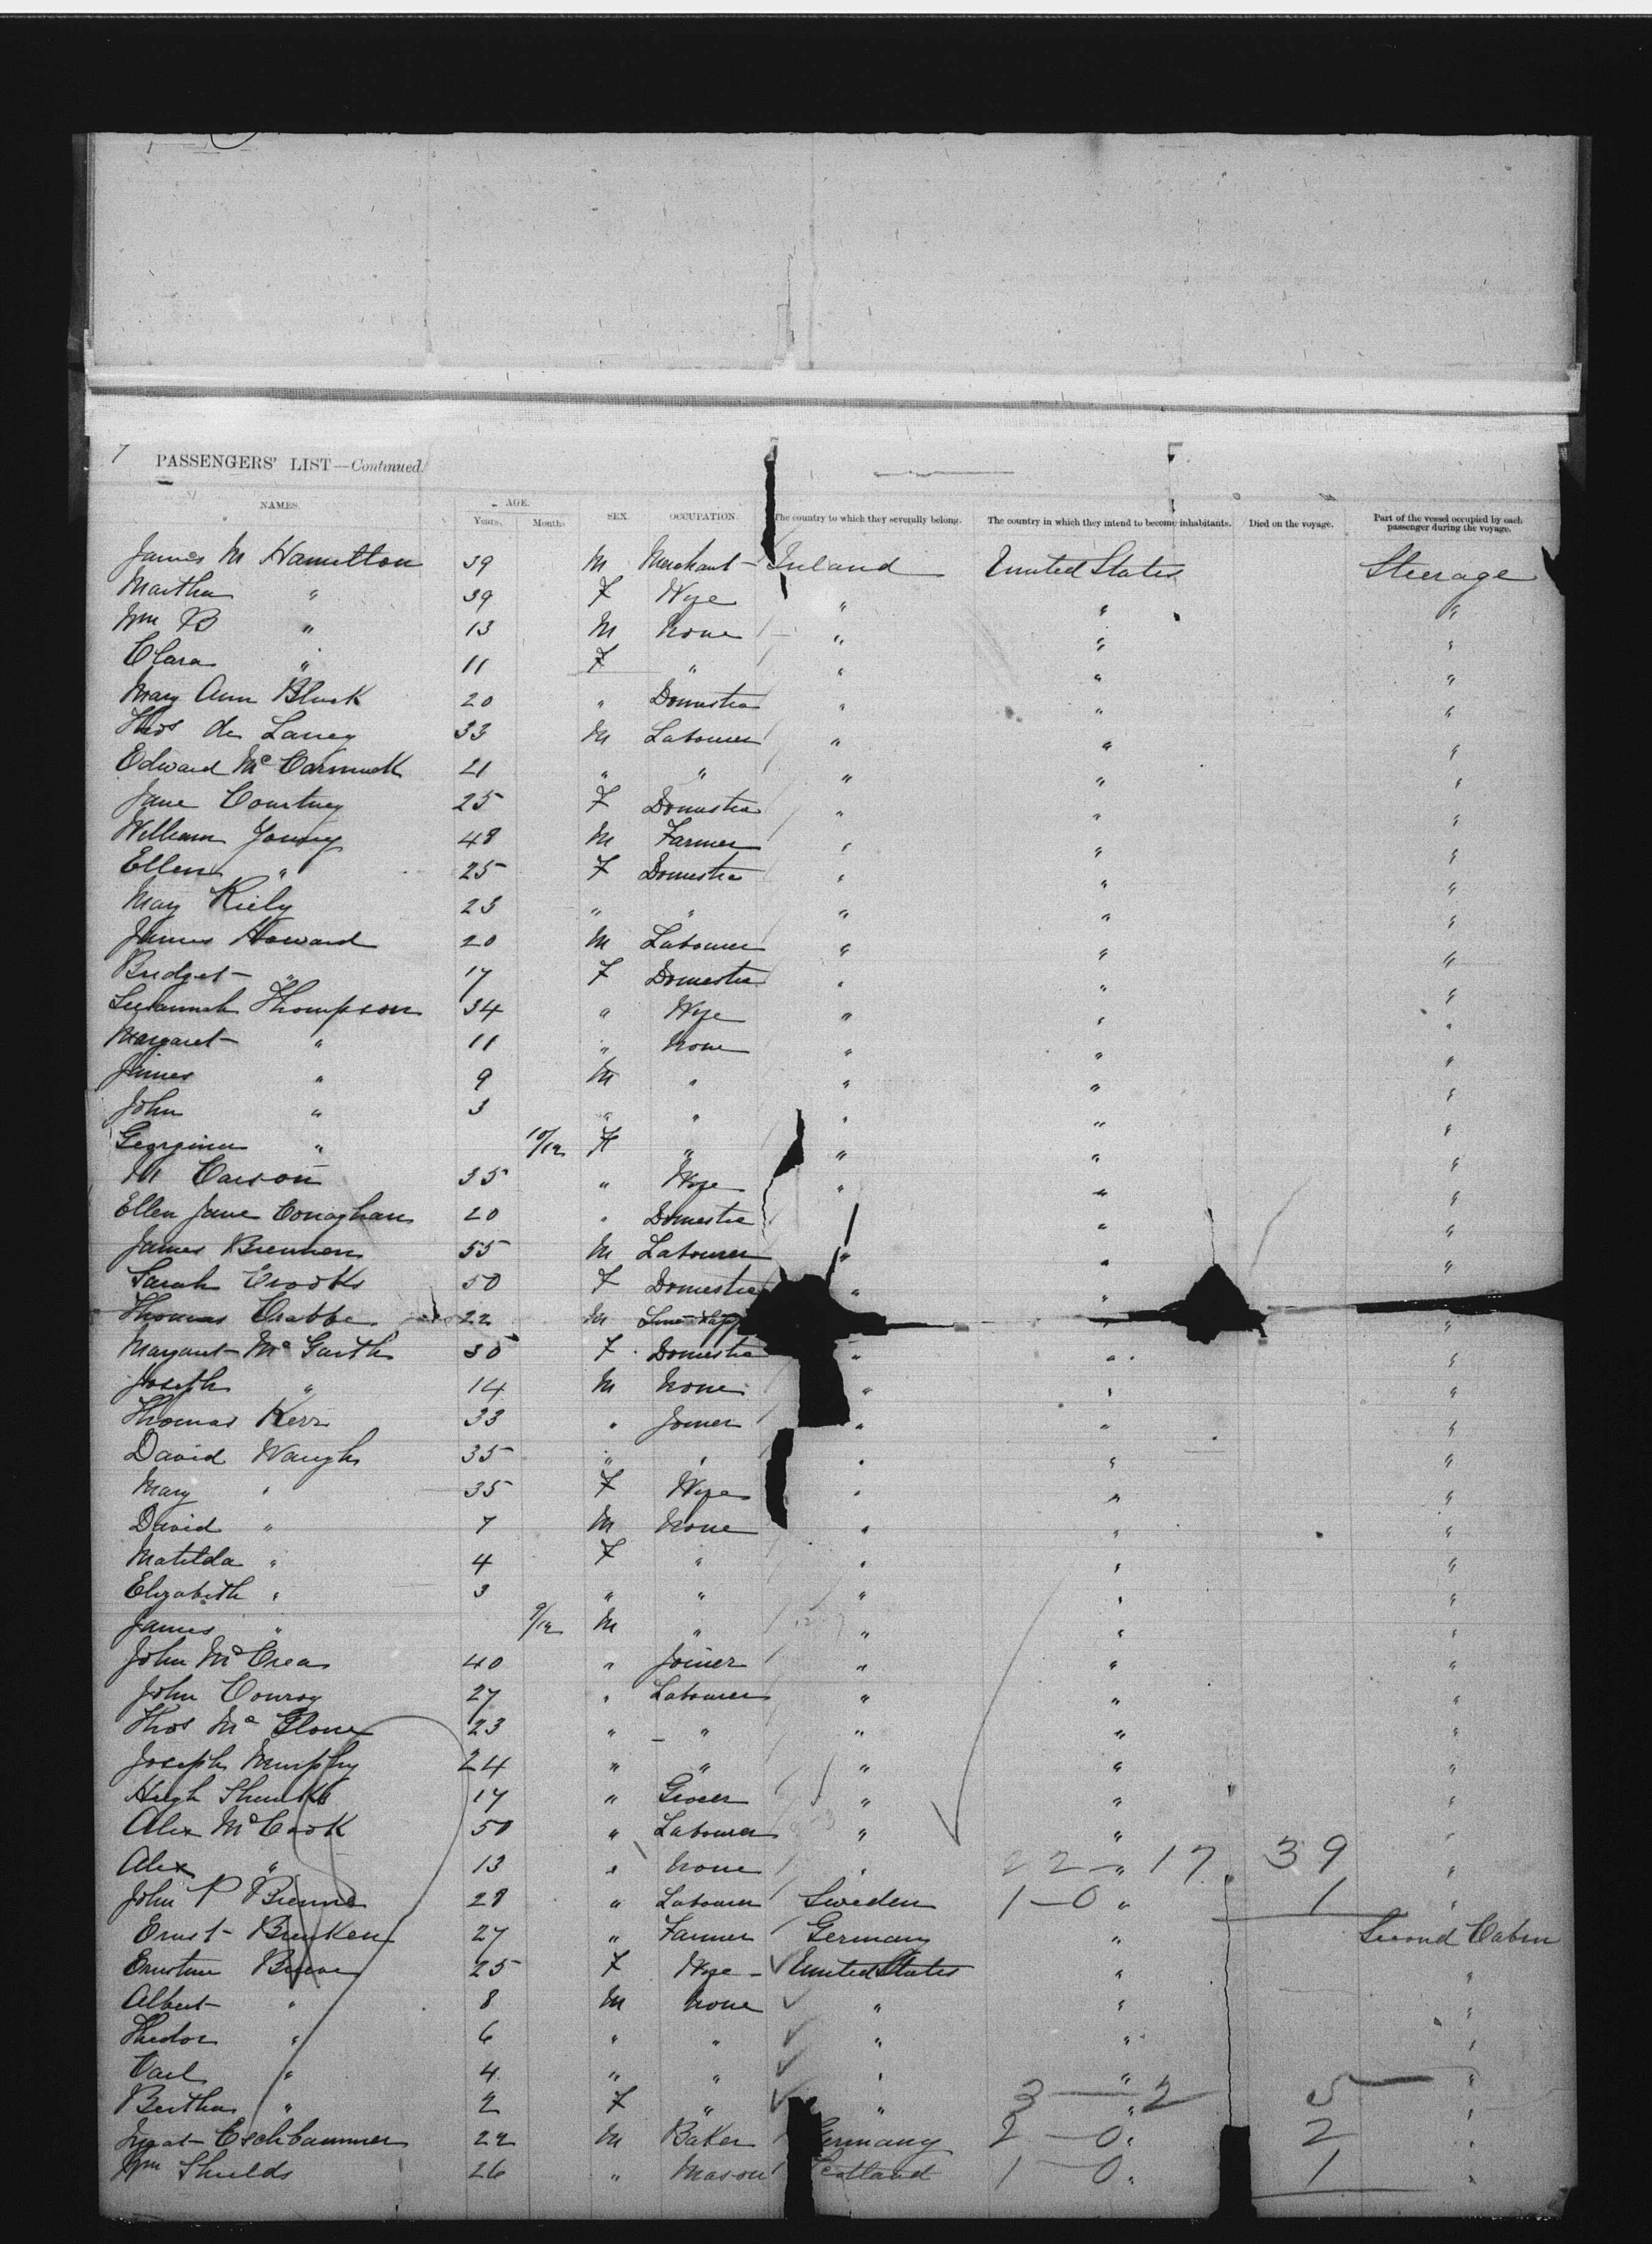 7 PASSENGERS' LIST—Continued.
NAMES. AGE. Years. Months. SEX. OCCUPATION. The country to which they severally belong. The country in which they intend to become inhabitants. Died on the voyage. Part of the vessel occupied by each passenger during the voyage.
James M Hamilton 39 M Merchant Ireland United States Steerage
Martha " 39 F Wife " " "
Wm B " 13 M None " " "
Clara " 11 F " " " "
Mary Ann Black 20 " Domestic " " "
Thos de Lacey 33 M Labourer " " "
Edward McCormick 21 " " " " "
Jane Courtney 25 F Domestic " " "
William Young 48 M Farmer " " "
Ellen " 25 F Domestic " " "
Mary Kiely 23 " " " " "
James Howard 20 M Labourer " " "
Bridget " 17 F Domestic " " "
Susannah Thompson 34 " Wife " " "
Margaret " 11 " None " " "
James " 9 M " " " "
John " 3 " " " " "
Georgina " 10/12 F " " " "
M Carson 35 " Wife " " "
Ellen Jane Conaghan 20 " Domestic " "
James Brennen 55 M Labourer " " "
Sarah Crooks 50 F Domestic " "
Thomas Crabbe 22 M " "
Margaret McGarth 30 F Domestic " " "
Joseph " 14 M None " " "
Thomas Kerr 33 " Joiner " " "
David Waugh 35 " " " " "
Mary " 35 F Wife " " "
David " 7 M None " " "
Matilda " 4 F " " " "
Elizabeth " 3 " " " " "
James " 9/12 M " " " "
John McCrea 40 " Joiner " " "
John Conroy 27 " Labourer " " "
Thos McGlone 23 " " " " "
Joseph Murphy 24 " " " " "
Hugh 17 " Grocer " " "
Alex McCook 50 " Labourer " " "
Alex " 13 " None " 22 — " 17 39 "
John P 28 " Labourer Sweden 1—0 " 1 "
Ernst 27 " Farmer Germany " Second Cabin
Ernstine 25 F Wife United States " "
Albert " 8 M None " " "
Theodor " 6 " " " " "
Carl " 4 " " " " "
Bertha " 2 F " " 3 — " 2 5 "
Eschbaummer 22 M Baker Germany 2—0 " 2 "
Wm Shields 26 " Mason Scotland 1—0 " 1 "